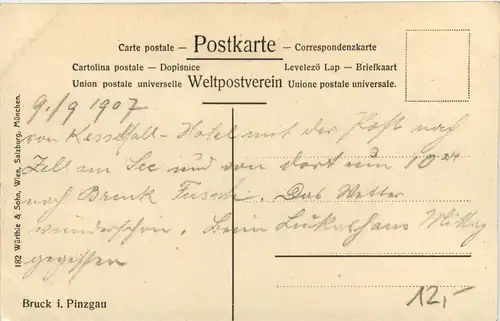 Carte postale — Postkarte — Correspondenzkarte
Cartolina postale — Dopisnice Levelezö Lap — Briefkaart
Union postale universelle Weltpostverein Unione postale universale.
9./9 1907
von Kesselfall-Hotel mit der Post nach
Zell am See und von dort um 10
nach Bruck Fusch. Das Wetter
wunderschön. Beim Lukashans Mittag
gegessen
12,-
Bruck i. Pinzgau
182 Würthle & Sohn, Wien, Salzburg, München.